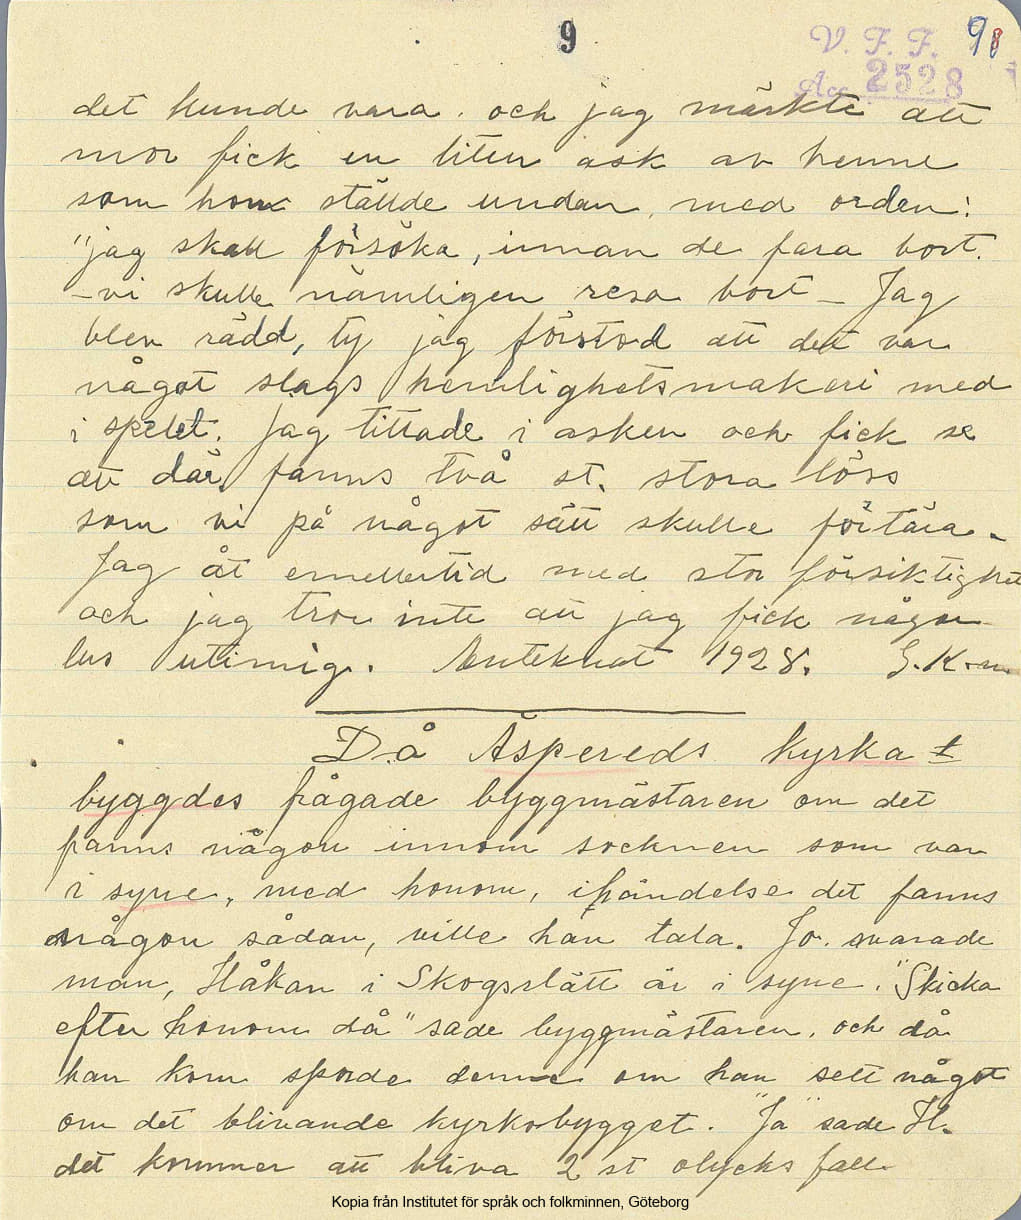 9
V. F. F. 98
Acc 2528
det kunde vara. och jag märkte att
mor fick en liten ask av henne
som hon ställde undan, med orden:
"jag skall försöka, innan de fara bort.
– vi skulle nämligen resa bort – Jag
blev rädd, ty jag förstod att det var
något slags hemlighetsmakeri med
i spelet. Jag tittade i asken och fick se
att där fanns två st. stora löss
som vi på något sätt skulle förtära.
Jag åt emellertid med stor försiktighet
och jag tror inte att jag fick någon
lus uti mig. Antecknat 1928. G.K-n.
Då Äspereds kyrka
byggdes frågade byggmästaren om det
fanns någon innom socknen som var
i syne, med honom, ihändelse det fanns
någon sådan, ville han tala. Jo. svarade
man, Håkan i Skogsslätt är i syne. "Skicka
efter honom då" sade byggmästaren. och då
han kom sporde denne om han sett något
om det blivande kyrkobygget. "Ja" sade H.
det kommer att bliva 2 st olycksfall
Kopia från Institutet för språk och folkminnen, Göteborg